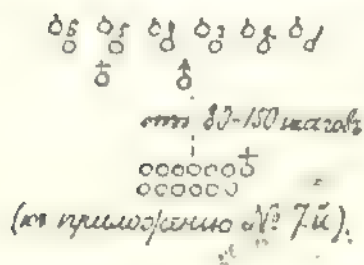 от 80-150 шаговъ
(къ приложенію № 7-й).